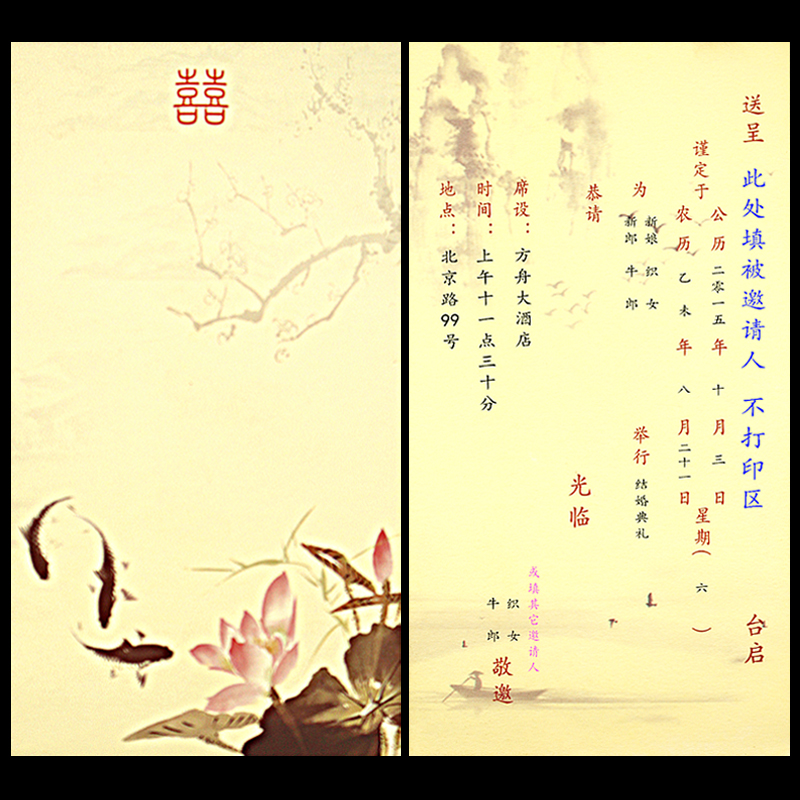 囍
送呈 此处填被邀请人 不打印区 台启
谨定于
公历 二零一五 年 十 月 三 日
农历 乙未 年 八 月 二十一 日
星期( 六 )
为
新娘 织女
新郎 牛郎
举行 结婚典礼
恭请
光临
席设：方舟大酒店
时间：上午十一点三十分
地点：北京路99号
或填其它邀请人
织女
牛郎
敬邀